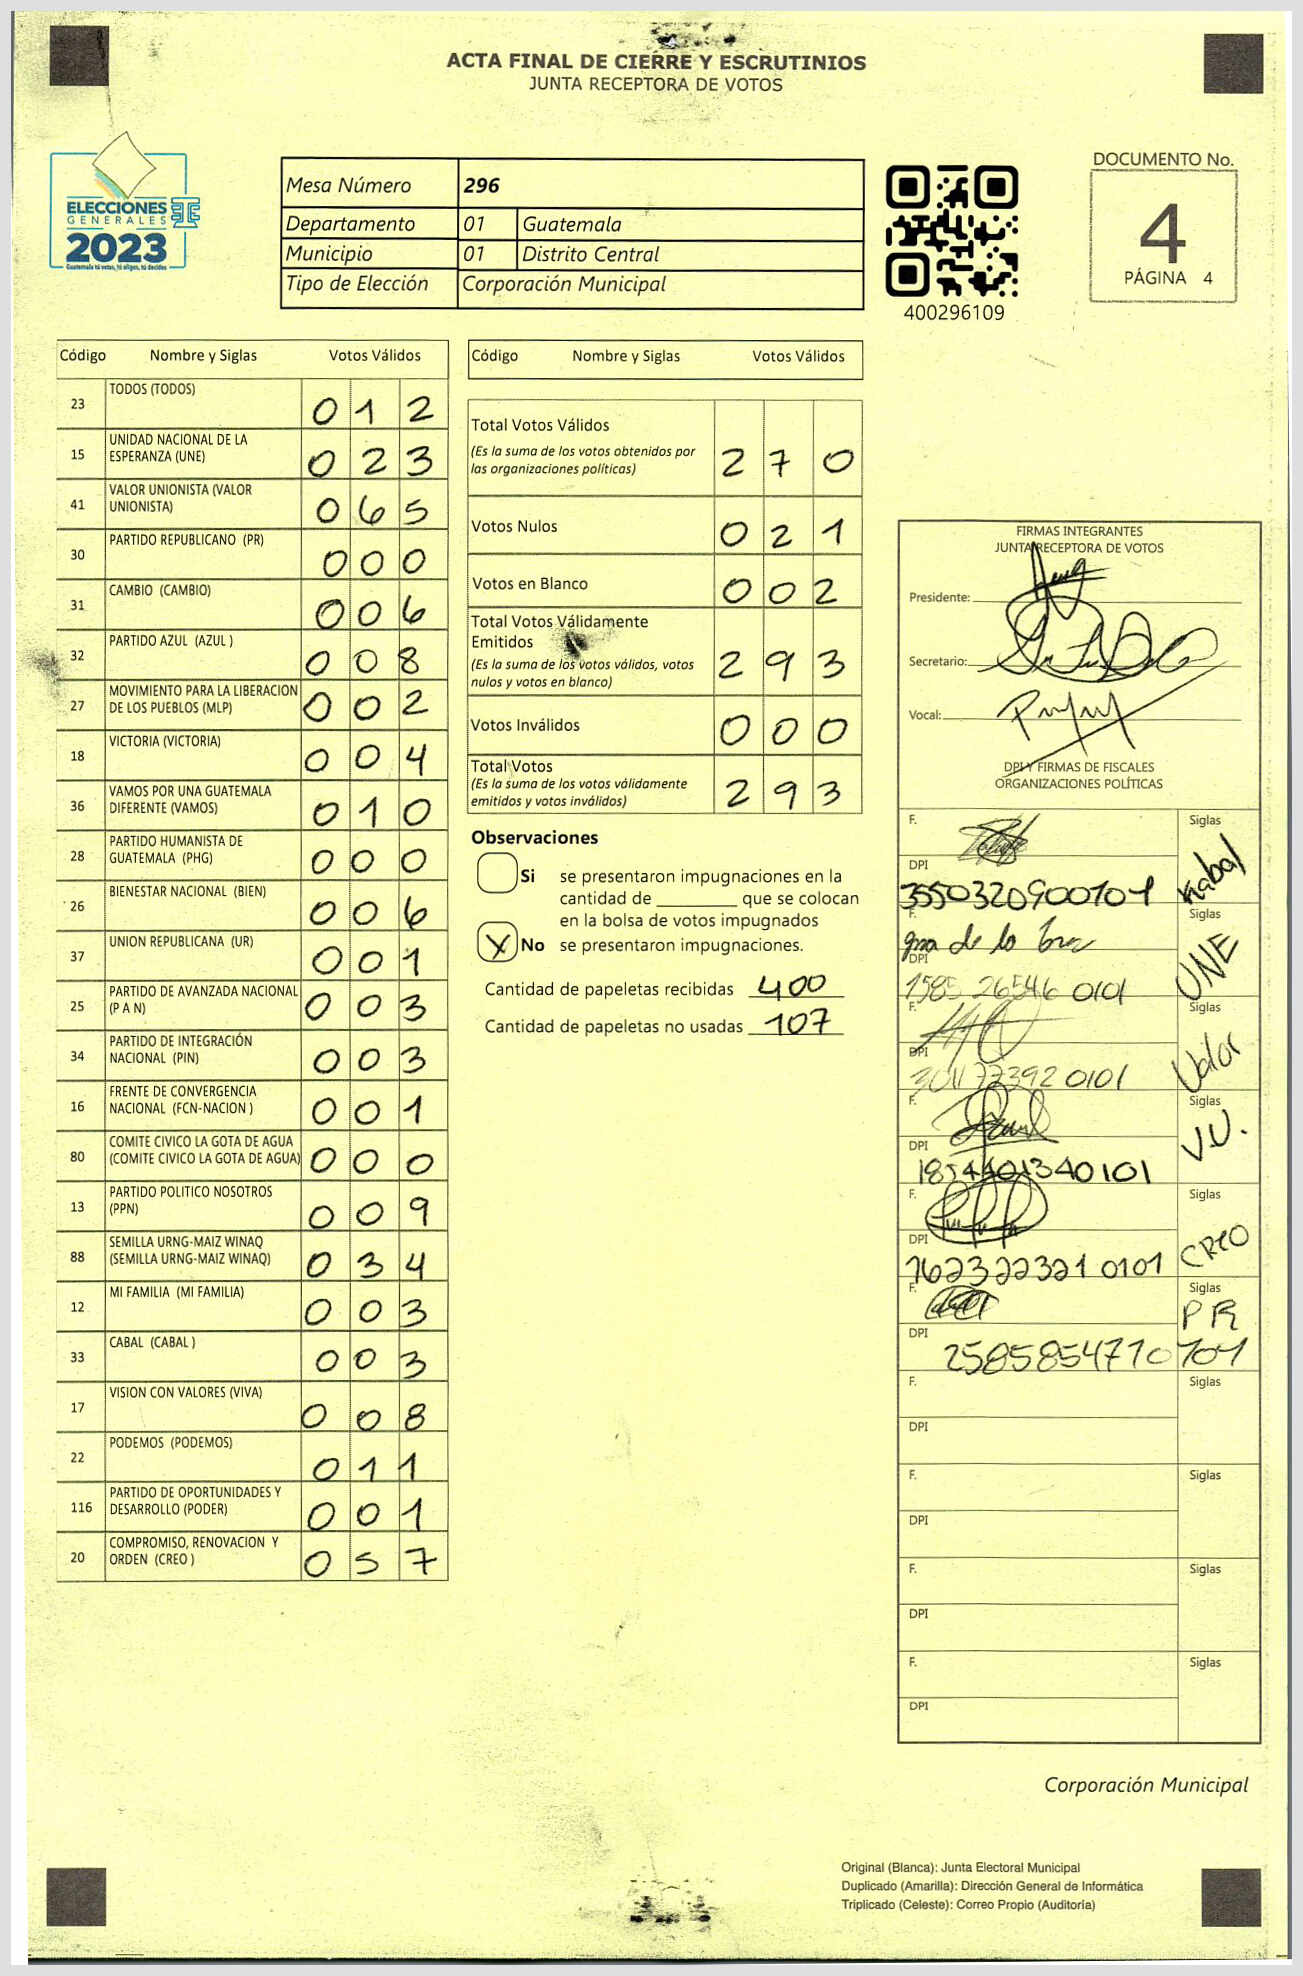 ACTA FINAL DE CIERRE Y ESCRUTINIOS
JUNTA RECEPTORA DE VOTOS
ELECCIONES
GENERALES
2023
Guatemala tú votas, tú eliges, tú decides
Mesa Número 296
Departamento 01 Guatemala
Municipio 01 Distrito Central
Tipo de Elección Corporación Municipal
400296109
DOCUMENTO No.
4
PÁGINA 4
Código Nombre y Siglas Votos Válidos
23 TODOS (TODOS) 0 1 2
15 UNIDAD NACIONAL DE LA ESPERANZA (UNE) 0 2 3
41 VALOR UNIONISTA (VALOR UNIONISTA) 0 6 5
30 PARTIDO REPUBLICANO (PR) 0 0 0
31 CAMBIO (CAMBIO) 0 0 6
32 PARTIDO AZUL (AZUL ) 0 0 8
27 MOVIMIENTO PARA LA LIBERACION DE LOS PUEBLOS (MLP) 0 0 2
18 VICTORIA (VICTORIA) 0 0 4
36 VAMOS POR UNA GUATEMALA DIFERENTE (VAMOS) 0 1 0
28 PARTIDO HUMANISTA DE GUATEMALA (PHG) 0 0 0
26 BIENESTAR NACIONAL (BIEN) 0 0 6
37 UNION REPUBLICANA (UR) 0 0 1
25 PARTIDO DE AVANZADA NACIONAL (P A N) 0 0 3
34 PARTIDO DE INTEGRACIÓN NACIONAL (PIN) 0 0 3
16 FRENTE DE CONVERGENCIA NACIONAL (FCN-NACION ) 0 0 1
80 COMITE CIVICO LA GOTA DE AGUA (COMITE CIVICO LA GOTA DE AGUA) 0 0 0
13 PARTIDO POLITICO NOSOTROS (PPN) 0 0 9
88 SEMILLA URNG-MAIZ WINAQ (SEMILLA URNG-MAIZ WINAQ) 0 3 4
12 MI FAMILIA (MI FAMILIA) 0 0 3
33 CABAL (CABAL ) 0 0 3
17 VISION CON VALORES (VIVA) 0 0 8
22 PODEMOS (PODEMOS) 0 1 1
116 PARTIDO DE OPORTUNIDADES Y DESARROLLO (PODER) 0 0 1
20 COMPROMISO, RENOVACION Y ORDEN (CREO ) 0 5 7
Código Nombre y Siglas Votos Válidos
Total Votos Válidos
(Es la suma de los votos obtenidos por
las organizaciones políticas) 2 7 0
Votos Nulos 0 2 1
Votos en Blanco 0 0 2
Total Votos Válidamente
Emitidos
(Es la suma de los votos válidos, votos
nulos y votos en blanco) 2 9 3
Votos Inválidos 0 0 0
Total Votos
(Es la suma de los votos válidamente
emitidos y votos inválidos) 2 9 3
Observaciones
Si se presentaron impugnaciones en la
cantidad de ________ que se colocan
en la bolsa de votos impugnados
X No se presentaron impugnaciones.
Cantidad de papeletas recibidas 400
Cantidad de papeletas no usadas 107
FIRMAS INTEGRANTES
JUNTA RECEPTORA DE VOTOS
Presidente:
Secretario:
Vocal:
DPI Y FIRMAS DE FISCALES
ORGANIZACIONES POLÍTICAS
F. Siglas
DPI
3550320900101 Kabal
F. de la Siglas
DPI
1585 26546 0101 UNE
F. Siglas
DPI
3011 77392 0101 Valor
F. Siglas
DPI
1854401340101 V.U.
F. Siglas
DPI
1623223210101 CREO
F. Siglas
PR
DPI
2585854710101
F. Siglas
DPI
F. Siglas
DPI
F. Siglas
DPI
F. Siglas
DPI
Corporación Municipal
Original (Blanca): Junta Electoral Municipal
Duplicado (Amarilla): Dirección General de Informática
Triplicado (Celeste): Correo Propio (Auditoría)